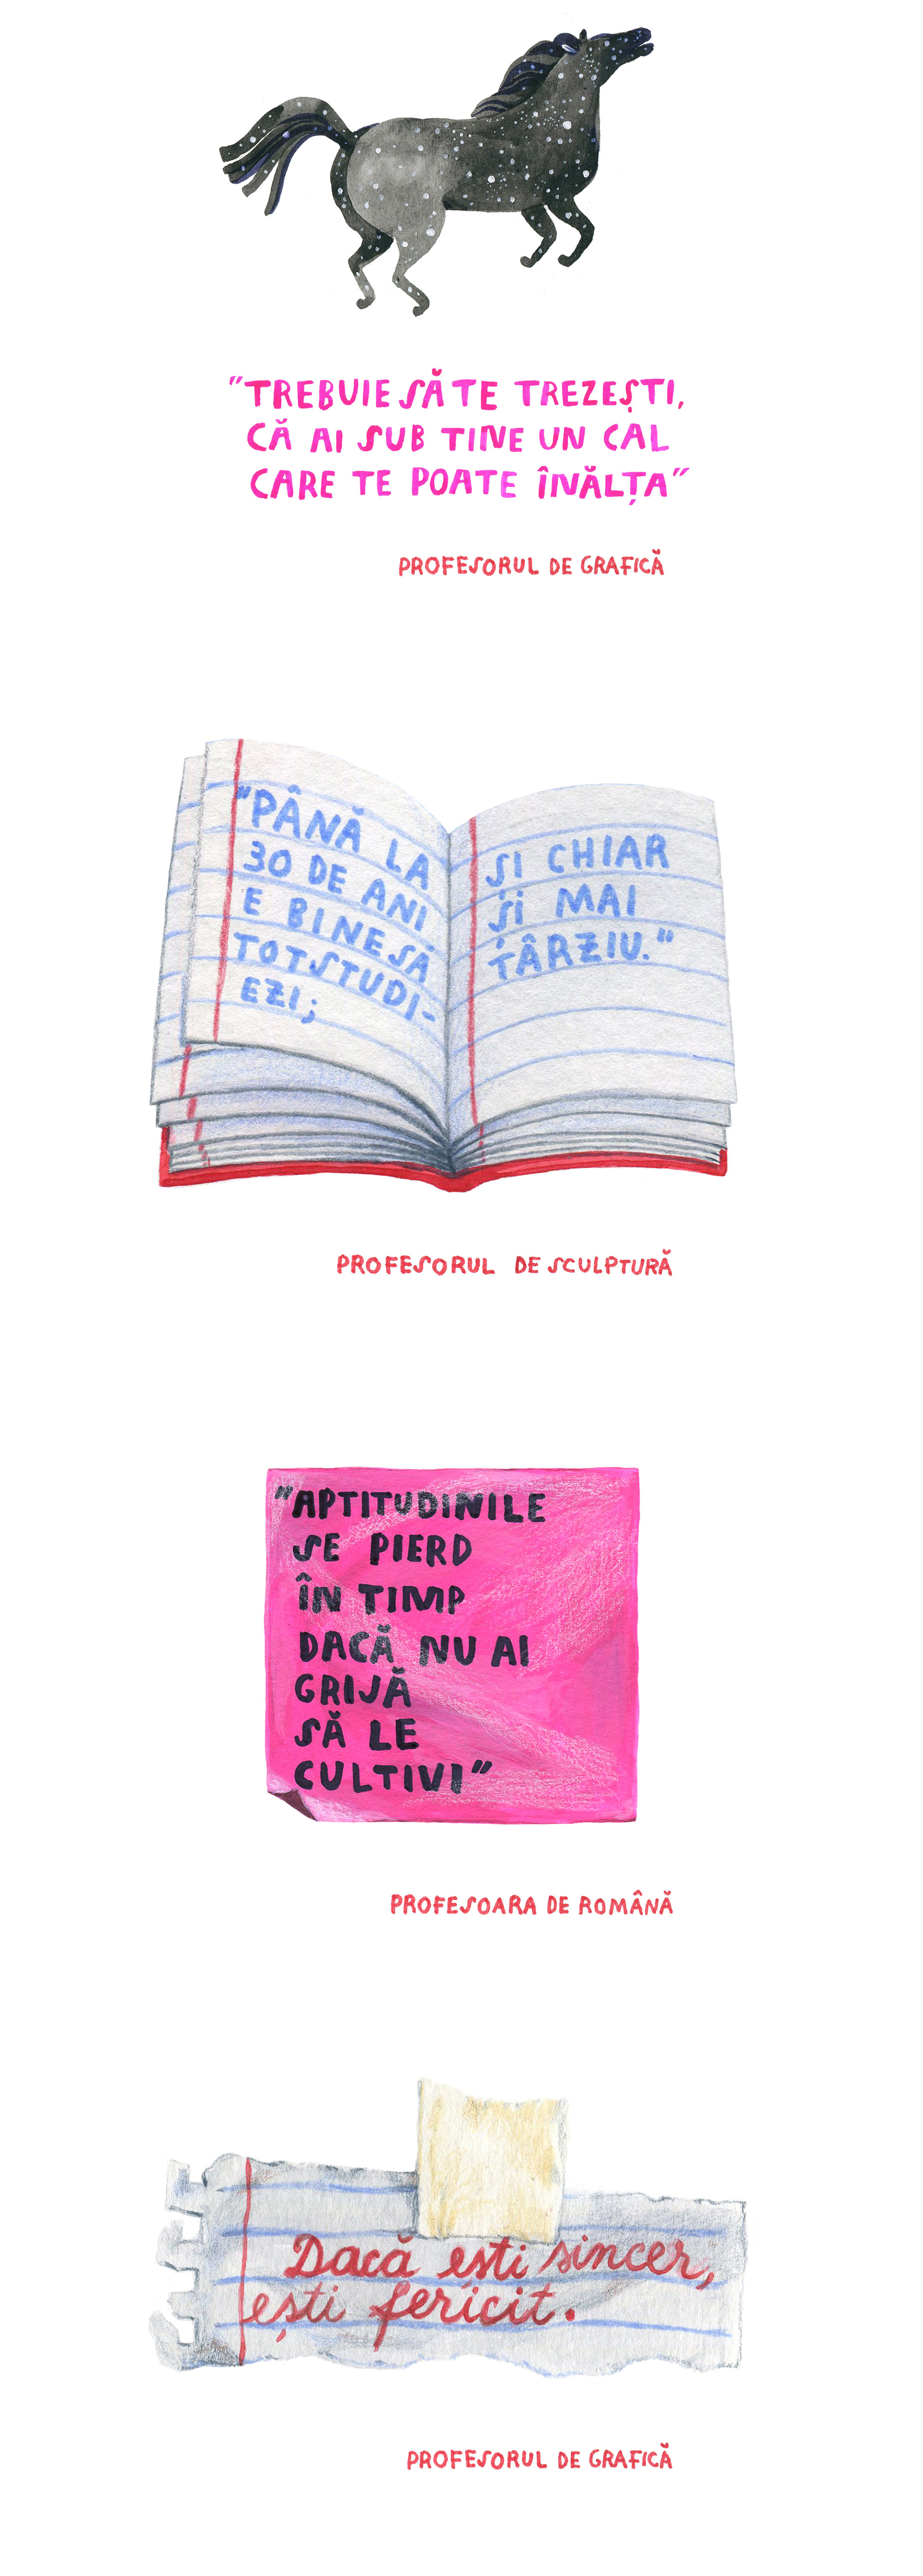 "TREBUIE SĂ TE TREZEȘTI,
CĂ AI SUB TINE UN CAL
CARE TE POATE ÎNĂLȚA"
PROFESORUL DE GRAFICĂ
"PÂNĂ LA
30 DE ANI
E BINE SĂ
TOT STUDI-
EZI;
ȘI CHIAR
ȘI MAI
TÂRZIU."
PROFESORUL DE SCULPTURĂ
"APTITUDINILE
SE PIERD
ÎN TIMP
DACĂ NU AI
GRIJĂ
SĂ LE
CULTIVI"
PROFESOARA DE ROMÂNĂ
Dacă esti sincer,
ești fericit.
PROFESORUL DE GRAFICĂ